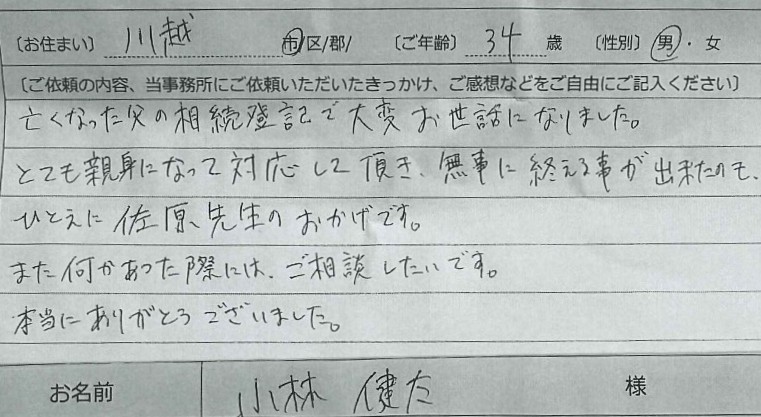 〔お住まい〕 川越 市/区/郡/ 〔ご年齢〕 34 歳 〔性別〕 男・女
〔ご依頼の内容、当事務所にご依頼いただいたきっかけ、ご感想などをご自由にご記入ください〕
亡くなった父の相続登記で大変お世話になりました。
とても親身になって対応して頂き、無事に終える事が出来たのも、
ひとえに佐原先生のおかげです。
また何かあった際には、ご相談したいです。
本当にありがとうございました。
お名前 小林 健 様